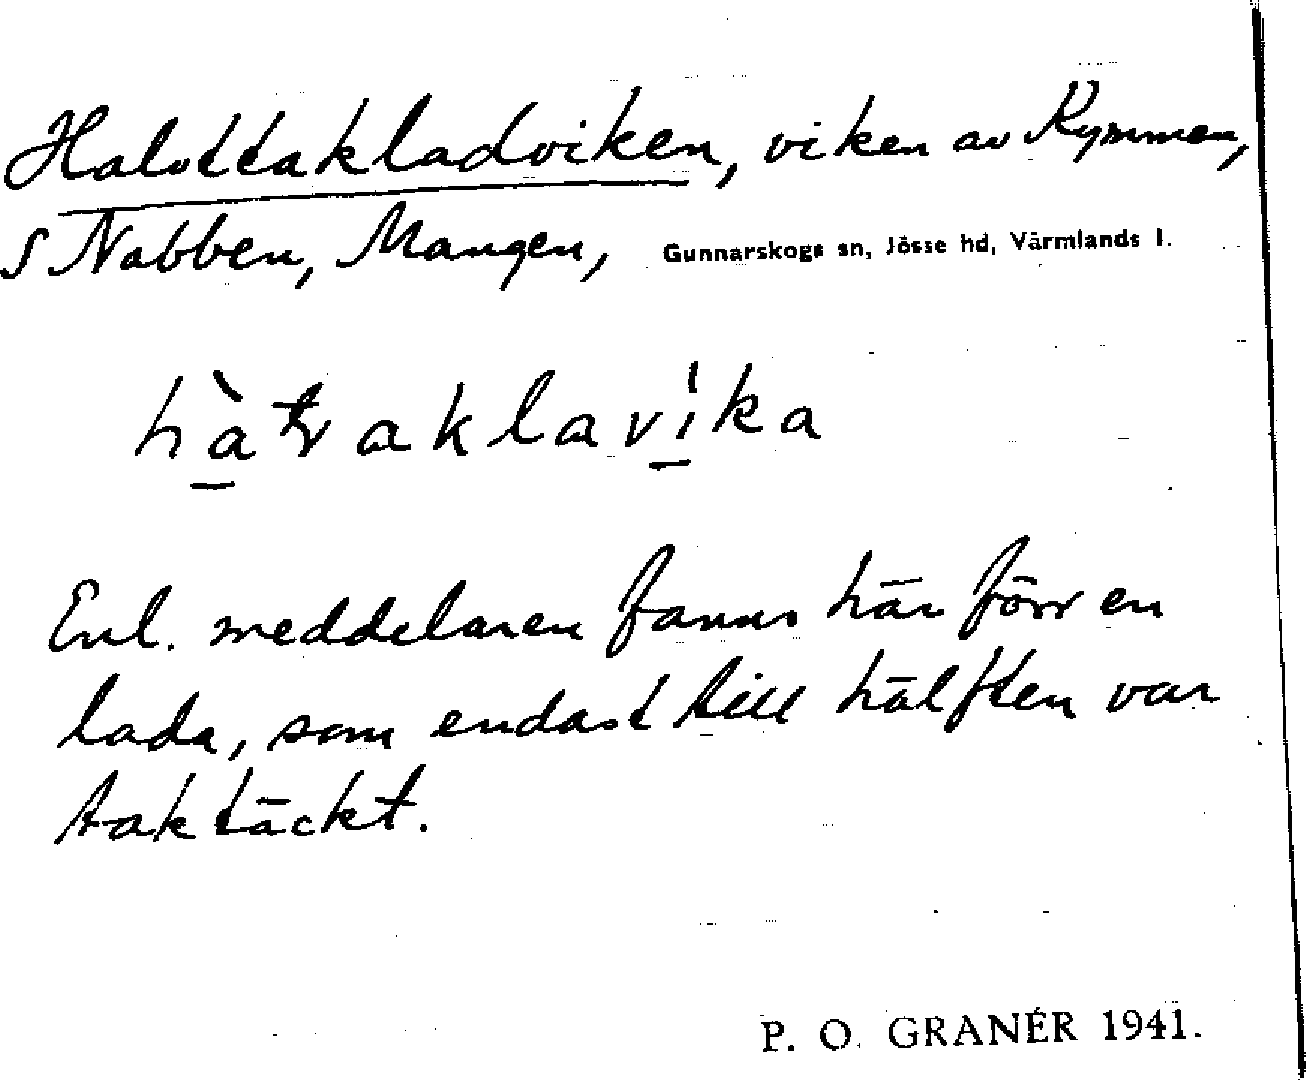 Halvttakladviken, viken av Kymmen,
S Nabben, Mangen, Gunnarskogs sn, Jösse hd, Värmlands l.
Enl. meddelaren fanns här förr en
lada, som endast till hälften var
taktäckt.
P. O. GRANÉR 1941.